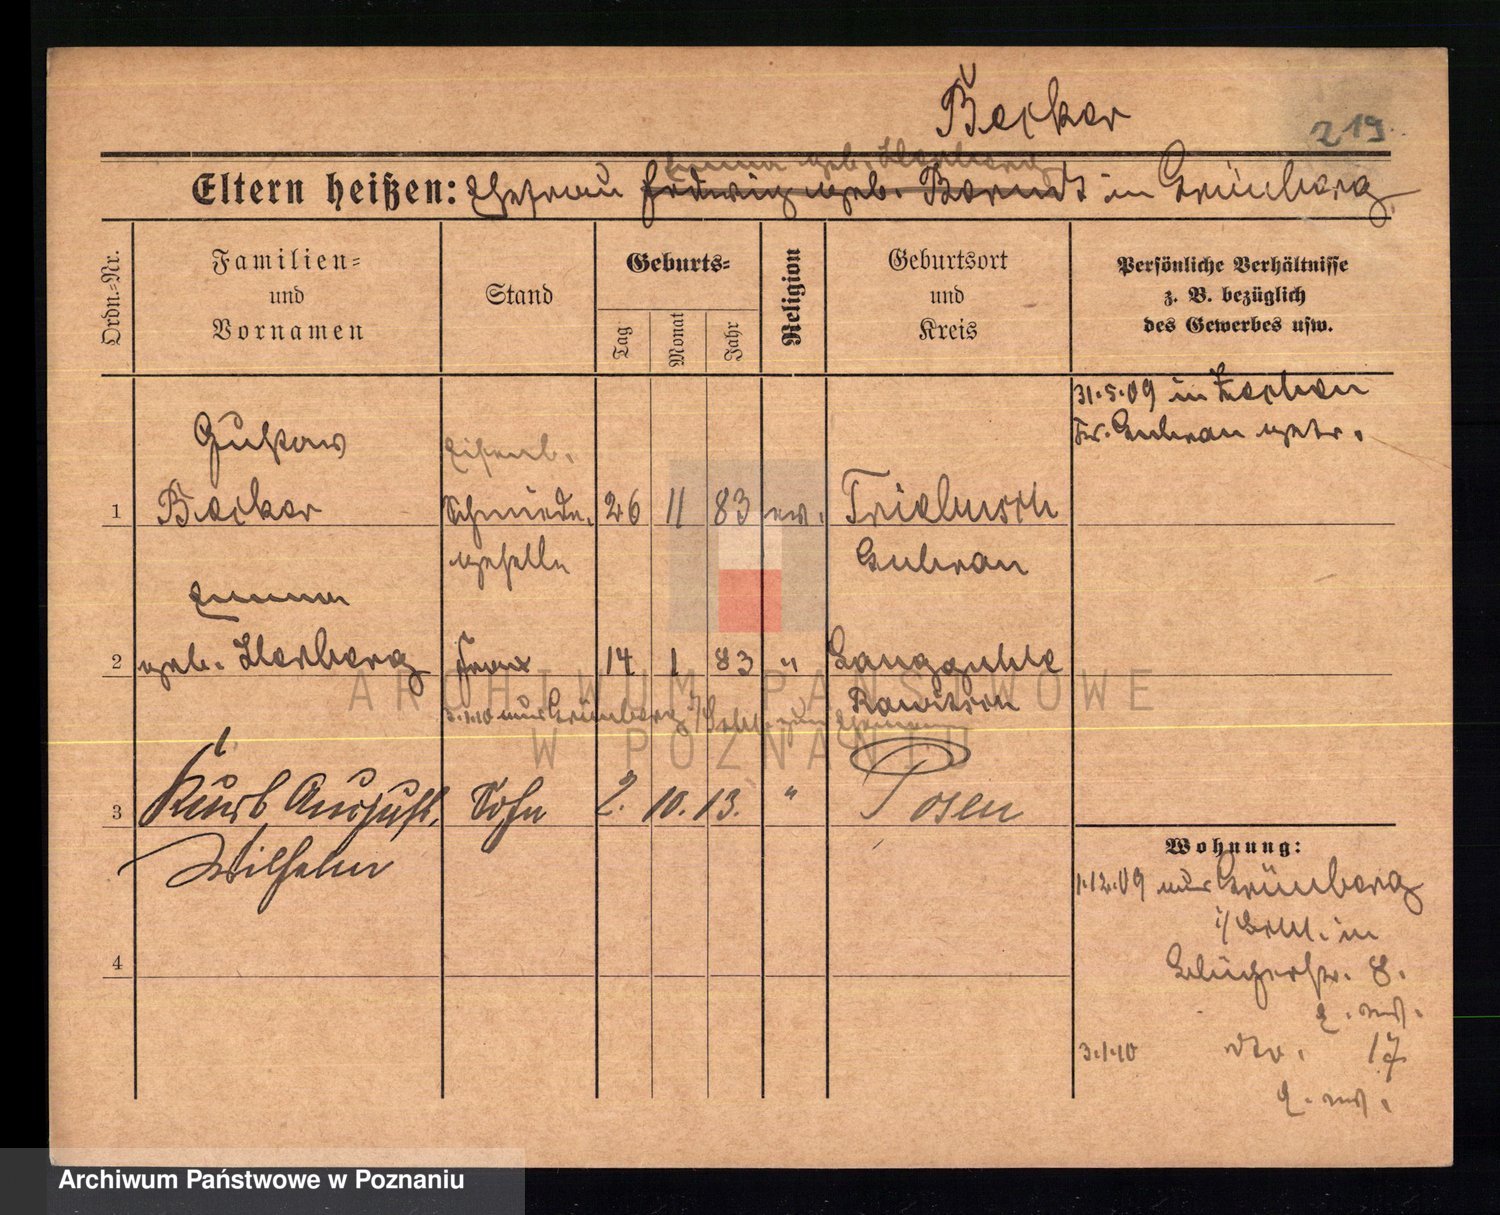 Becker
219.
Emma geb. Herberg
Eltern heißen: Ehefrau Hedwig geb. Berndt in Grünberg
Ordn.-Nr.
Familien-
und
Vornamen
Stand
Geburts-
Tag
Monat
Jahr
Religion
Geburtsort
und
Kreis
Persönliche Verhältnisse
z. B. bezüglich
des Gewerbes usw.
31.5.09 in
Kr. Guhrau getr.
Gustav
Eisenb.
1 Becker Schmiede- 26 11 83 ev. Triebusch
geselle Guhrau
Emma
2 geb. Herberg Frau 14 1 83 " Langguhle
Rawitsch
3.1.10 aus Grünberg i/Schl. zum Ehemann
3 Kurt August Sohn 2. 10. 13. " Posen
Wilhelm
4
Wohnung:
1.12.09 aus Grünberg
i/Schl. in
Blücherstr. 8.
3.1.10 dto. 17
ARCHIWUM PAŃSTWOWE
W POZNANIU
Archiwum Państwowe w Poznaniu